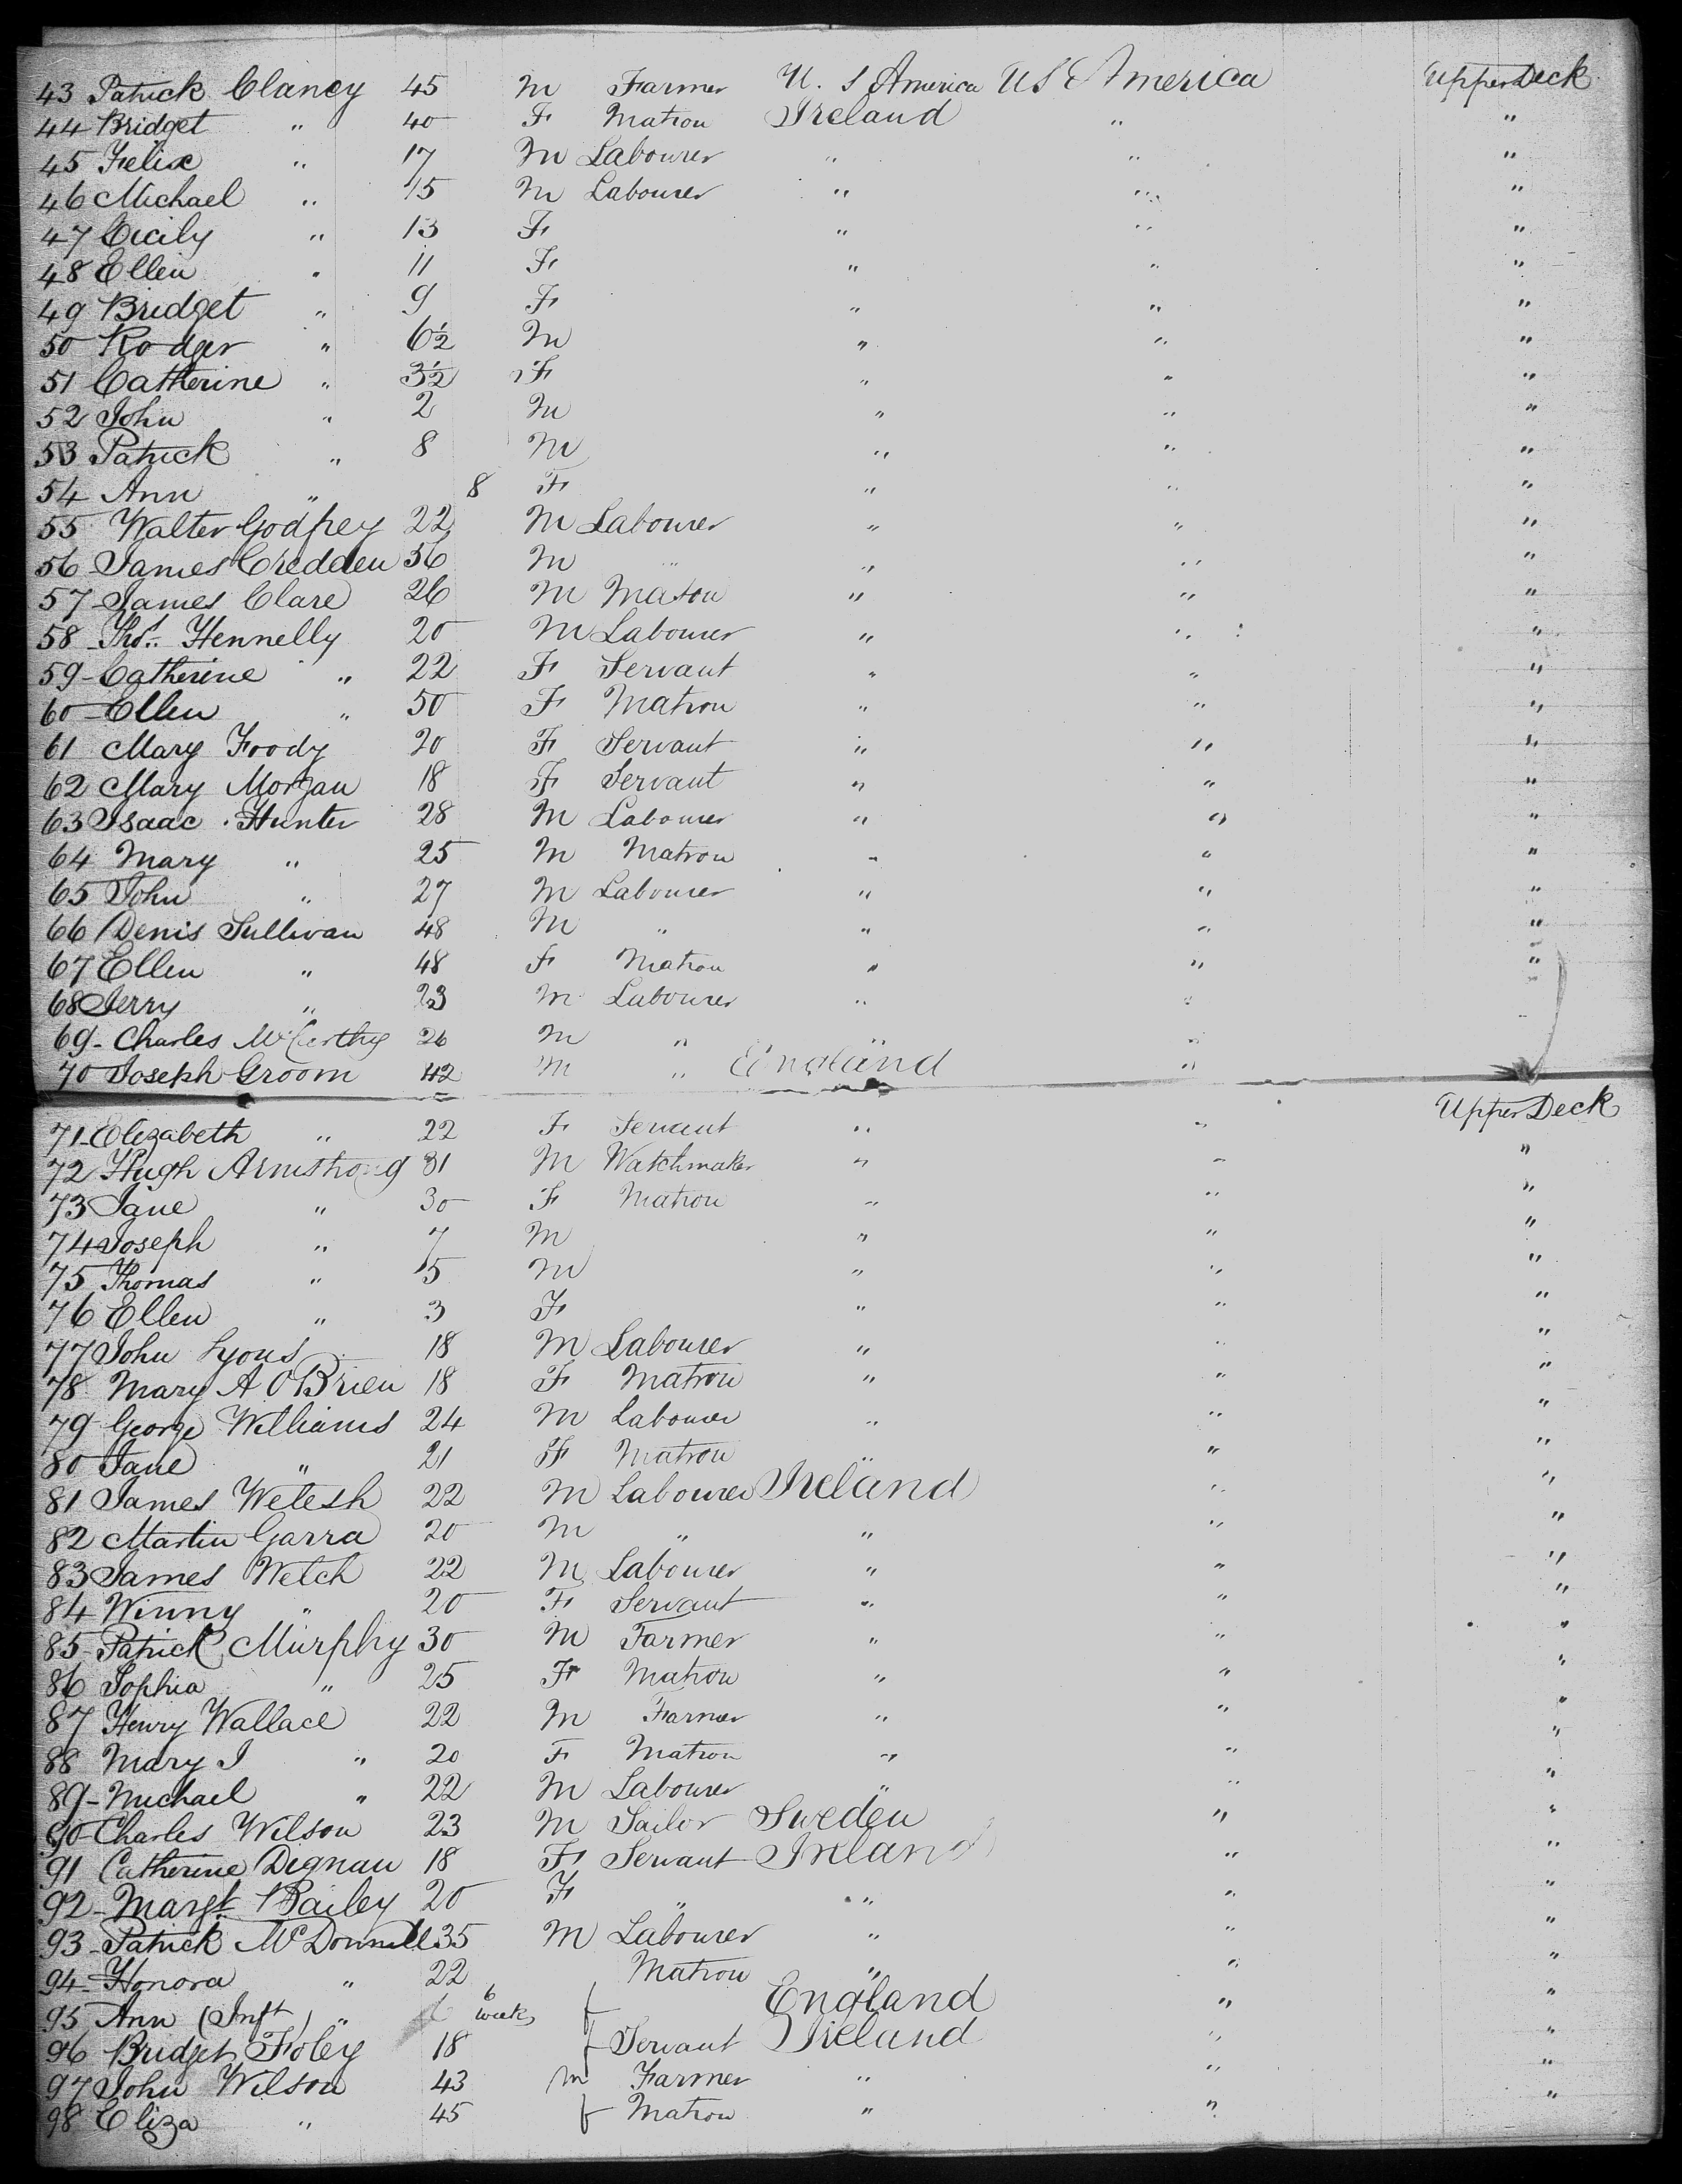 43 Patrick Clancy 45 M Farmer U. S America US America Upper Deck
44 Bridget " 40 F Matron Ireland " "
45 Felix " 17 M Labourer " " "
46 Michael " 15 M Labourer " " "
47 Cicily " 13 F " " "
48 Ellen " 11 F " " "
49 Bridget " 9 F " " "
50 Rodger " 6½ M " " "
51 Catherine " 3½ F " " "
52 John " 2 M " " "
53 Patrick " 8 M " " "
54 Ann " 8 F " " "
55 Walter Godfrey 22 M Labourer " " "
56 James Credden 56 M " " " "
57 James Clare 26 M Mason " " "
58 Thos. Hennelly 20 M Labourer " " "
59 Catherine " 22 F Servant " " "
60 Ellen " 50 F Matron " " "
61 Mary Foody 20 F Servant " " "
62 Mary Morgan 18 F Servant " " "
63 Isaac Hunter 28 M Labourer " " "
64 Mary " 25 M Matron " " "
65 John " 27 M Labourer " " "
66 Denis Sullivan 48 M " " " "
67 Ellen " 48 F Matron " " "
68 Jerry " 23 M Labourer " " "
69 Charles McCarthy 26 M " " "
70 Joseph Groom 42 M " England "
71 Elizabeth " 22 F Servant " " Upper Deck
72 Hugh Armstrong 31 M Watchmaker " " "
73 Jane " 30 F Matron " " "
74 Joseph " 7 M " " "
75 Thomas " 5 M " " "
76 Ellen " 3 F " " "
77 John Lyons 18 M Labourer " " "
78 Mary A O'Brien 18 F Matron " " "
79 George Williams 24 M Labourer " " "
80 Jane " 21 F Matron " " "
81 James Welesh 22 M Labourer Ireland " "
82 Martin Garra 20 M " " " "
83 James Welch 22 M Labourer " " "
84 Winny " 20 F Servant " " "
85 Patrick Murphy 30 M Farmer " " "
86 Sophia " 25 F Matron " " "
87 Henry Wallace 22 M Farmer " " "
88 Mary J " 20 F Matron " " "
89 Michael " 22 M Labourer " " "
90 Charles Wilson 23 M Sailor Sweden " "
91 Catherine Dignan 18 F Servant Ireland " "
92 Margt. Bailey 20 F " " " "
93 Patrick McDonnell 35 M Labourer " " "
94 Honora " 22 Matron " " "
95 Ann (Inft) " 6 weeks f England " "
96 Bridget Foley 18 f Servant Ireland " "
97 John Wilson 43 m Farmer " " "
98 Eliza " 45 f Matron " " "